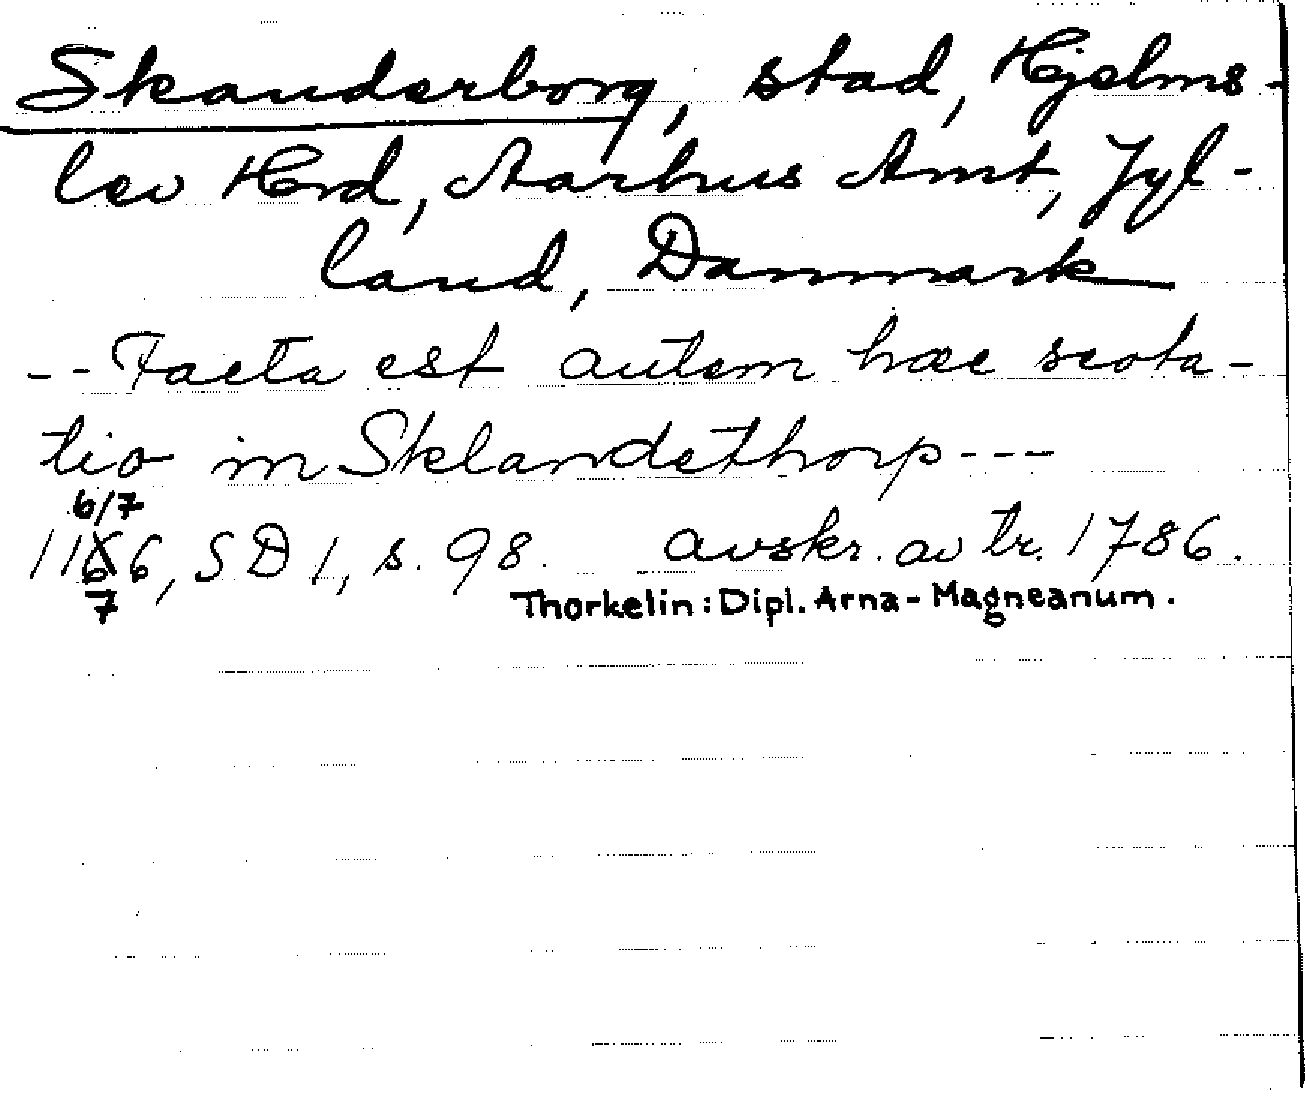 Skanderborg, stad, Hjelms-
lev Hrd, Aarhus Amt, Jyl-
land, Danmark
-- Facta est autem hæc scota-
tio in Sklandethorp ---
6/7
1166, SD 1, s. 98. avskr. av tr. 1786.
7 Thorkelin: Dipl. Arna-Magneanum.